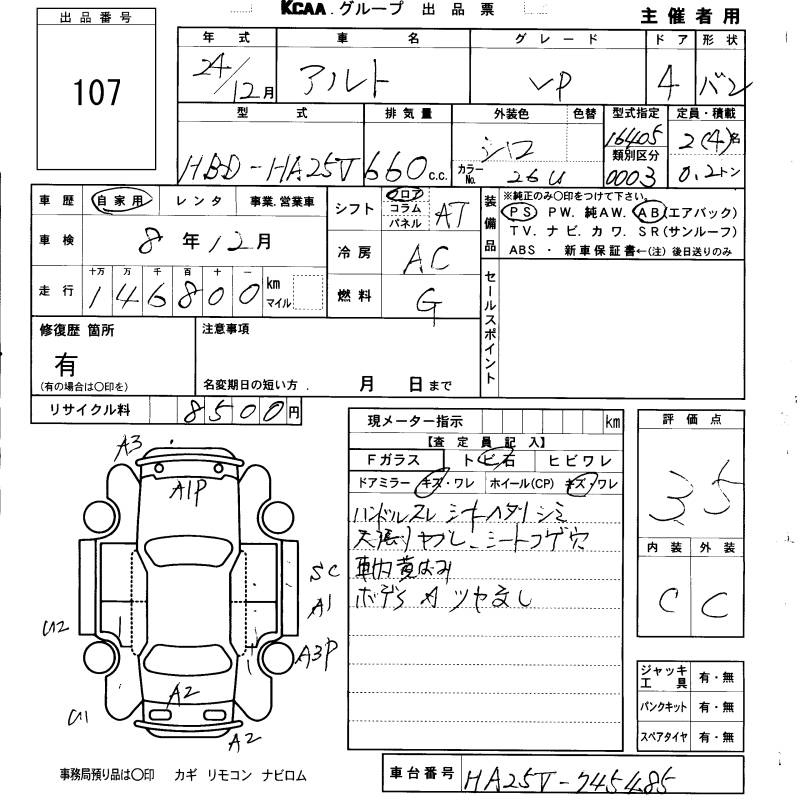 KCAA.グループ 出品票
主催者用
出品番号
107
年式 車名 グレード ドア 形状
24/12月 アルト VP 4 バン
型式 排気量 外装色 色替 型式指定 定員・積載
16405
類別区分
HBD-HA25V 660 c.c. シロ カラーNo. 26U 0003 2(4)名 0.2トン
車歴 自家用 レンタ 事業.営業車
車検 8年12月
走行 十万 万 千 百 十 一
146800 km マイル
シフト フロア コラム パネル AT
冷房 AC
燃料 G
装備品
※純正のみ〇印をつけて下さい。
PS PW. 純AW. AB(エアバック)
TV. ナビ. カワ. SR(サンルーフ)
ABS ・ 新車保証書←(注) 後日送りのみ
セールスポイント
修復歴 箇所
有
(有の場合は〇印を)
注意事項
名変期日の短い方. 月 日まで
リサイクル料 8500円
現メーター指示 km
【査定員記入】
Fガラス トビ石 ヒビワレ
ドアミラー キズ・ワレ ホイール(CP) キズ・ワレ
ハンドルスレ シートヘタリ シミ
天張りヤブレ、シートコゲ穴
車内黄ばみ
ボデー ツヤ無し
評価点
3.5
内装 外装
C C
ジャッキ工具 有・無
パンクキット 有・無
スペアタイヤ 有・無
A3
A1P
SC
A1
U2
A3P
A2
U1
A2
事務局預り品は〇印 カギ リモコン ナビロム
車台番号 HA25V-745485